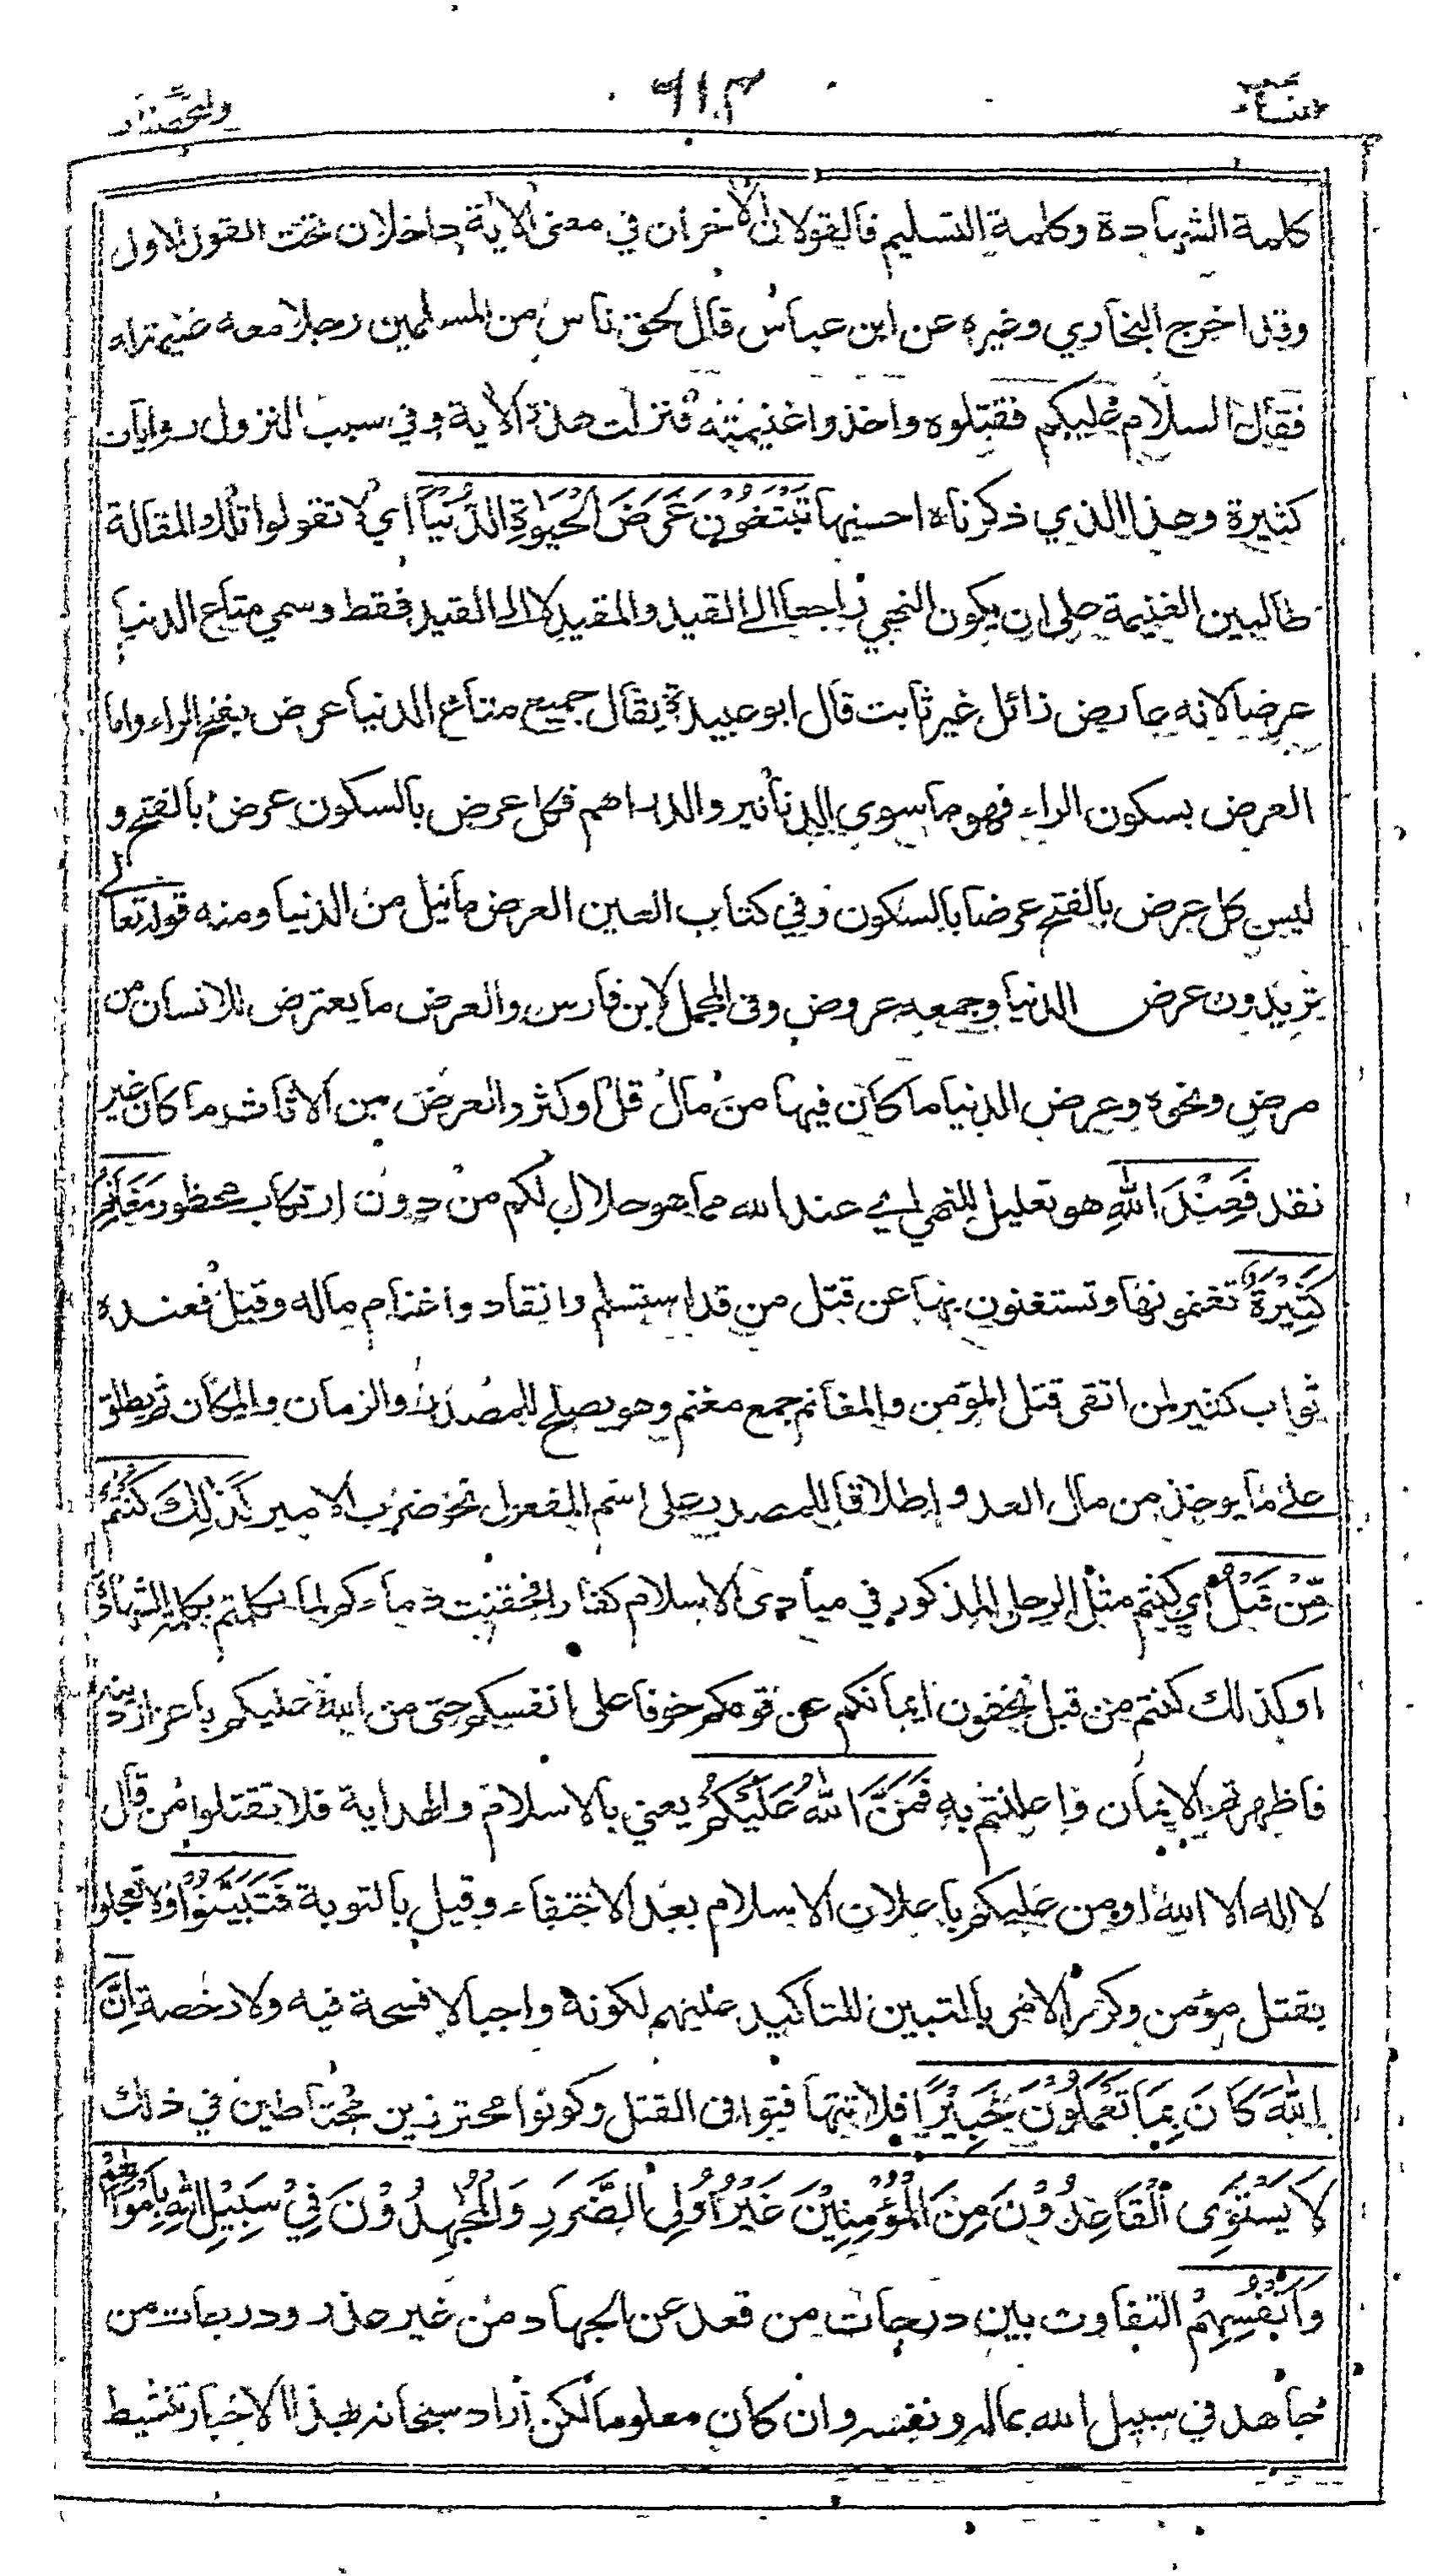 النساء ٦١٣ والمحصنات
كلمة الشهادة وكلمة التسليم فالقولان الاخران في معنى الاية داخلان تحت القول الاول
وقد اخرج البخاري وغيره عن ابن عباس قال لحق ناس من المسلمين رجلا معه غنيمة له
فقال السلام عليكم فقتلوه واخذوا غنيمته فنزلت هذه الاية وفي سبب النزول روايات
كثيرة وهذا الذي ذكرناه احسنها تَبْتَغُوْنَ عَرَضَ الْحَيٰوةِ الدُّنْيَا اي لا تقولوا تلك المقالة
طالبين الغنيمة على ان يكون النهي راجعا الى القيد والمقيد لا الى القيد فقط وسمي متاع الدنيا
عرضا لانه عارض زائل غير ثابت قال ابو عبيدة يقال جميع متاع الدنيا عرض بفتح الراء واما
العرض بسكون الراء فهو ما سوي الدنانير والدراهم فكل عرض بالسكون عرض بالفتح و
ليس كل عرض بالفتح عرضا بالسكون وفي كتاب العين العرض ما نيل من الدنيا ومنه قوله تعالى
تريدون عرض الدنيا وجمعه عروض وفي المجمل لابن فارس والعرض ما يعترض للانسان من
مرض ونحوه وعرض الدنيا ما كان فيها من مال قل او كثر والعرض من الاثاث ما كان غير
نقد فَعِنْدَ اللّٰهِ هو تعليل للنهي اي عند الله مما هو حلال لكم من دون ارتكاب محظور مَغَانِمُ
كَثِيْرَةٌ تغنمونها وتستغنون بها عن قتل من قد استسلم وانقاد واغتنام ماله وقيل فعنده
ثواب كثير لمن اتقى قتل المؤمن والمغانم جمع مغنم وهو يصلح للمصدر والزمان والمكان ثم يطلق
على ما يوخذ من مال العدو اطلاقا للمصدر على اسم المفعول نحو ضرب الامير كَذٰلِكَ كُنْتُمْ
مِّنْ قَبْلُ اي كنتم مثل الرجل المذكور في مبادى الاسلام كفارا فحقنت دماءكم لما تكلمتم بكلمة الشهادة
او كذلك كنتم من قبل تخفون ايمانكم عن قومكم خوفا على انفسكم حتى من الله عليكم باعزاز دينه
فاظهرتم الايمان واعلنتم به فَمَنَّ اللّٰهُ عَلَيْكُمْ يعني بالاسلام والهداية فلا تقتلوا من قال
لا اله الا الله او من عليكم باعلان الاسلام بعد الاختفاء وقيل بالتوبة فَتَبَيَّنُوْا ولا تعجلوا
بقتل مؤمن وكرر الامر بالتبين للتاكيد عليهم لكونه واجبا لا فسحة فيه ولا رخصة اِنَّ
اللّٰهَ كَانَ بِمَا تَعْمَلُوْنَ خَبِيْرًا فلا تتهافتوا في القتل وكونوا محترزين محتاطين في ذلك
لَا يَسْتَوِى الْقَاعِدُوْنَ مِنَ الْمُؤْمِنِيْنَ غَيْرُ اُولِى الضَّرَرِ وَالْمُجٰهِدُوْنَ فِيْ سَبِيْلِ اللّٰهِ بِاَمْوَالِهِمْ
وَاَنْفُسِهِمْ التفاوت بين درجات من قعد عن الجهاد من غير عذر ودرجات من
جاهد في سبيل الله بماله ونفسه وان كان معلوما لكن اراد سبحانه بهذا الاخبار تنشيط